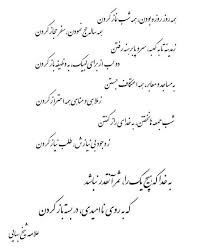 همه روز روزه بودن، همه شب نماز کردن
همه ساله حج نمودن، سفر حجاز کردن
ز مدینه تا به کعبه، سر و پا برهنه رفتن
دو لب از برای لبیک، به وظیفه باز کردن
به مساجد و معابد، همه اعتکاف جستن
ز ملاهی و مناهی همه احتراز کردن
شب جمعه ها نخفتن، به خدای راز گفتن
ز وجود بی نیازش، طلب نیاز کردن
به خدا که هیچ یک را، ثمر آنقدر نباشد
که به روی ناامیدی، در بسته باز کردن
علامه شیخ بهایی